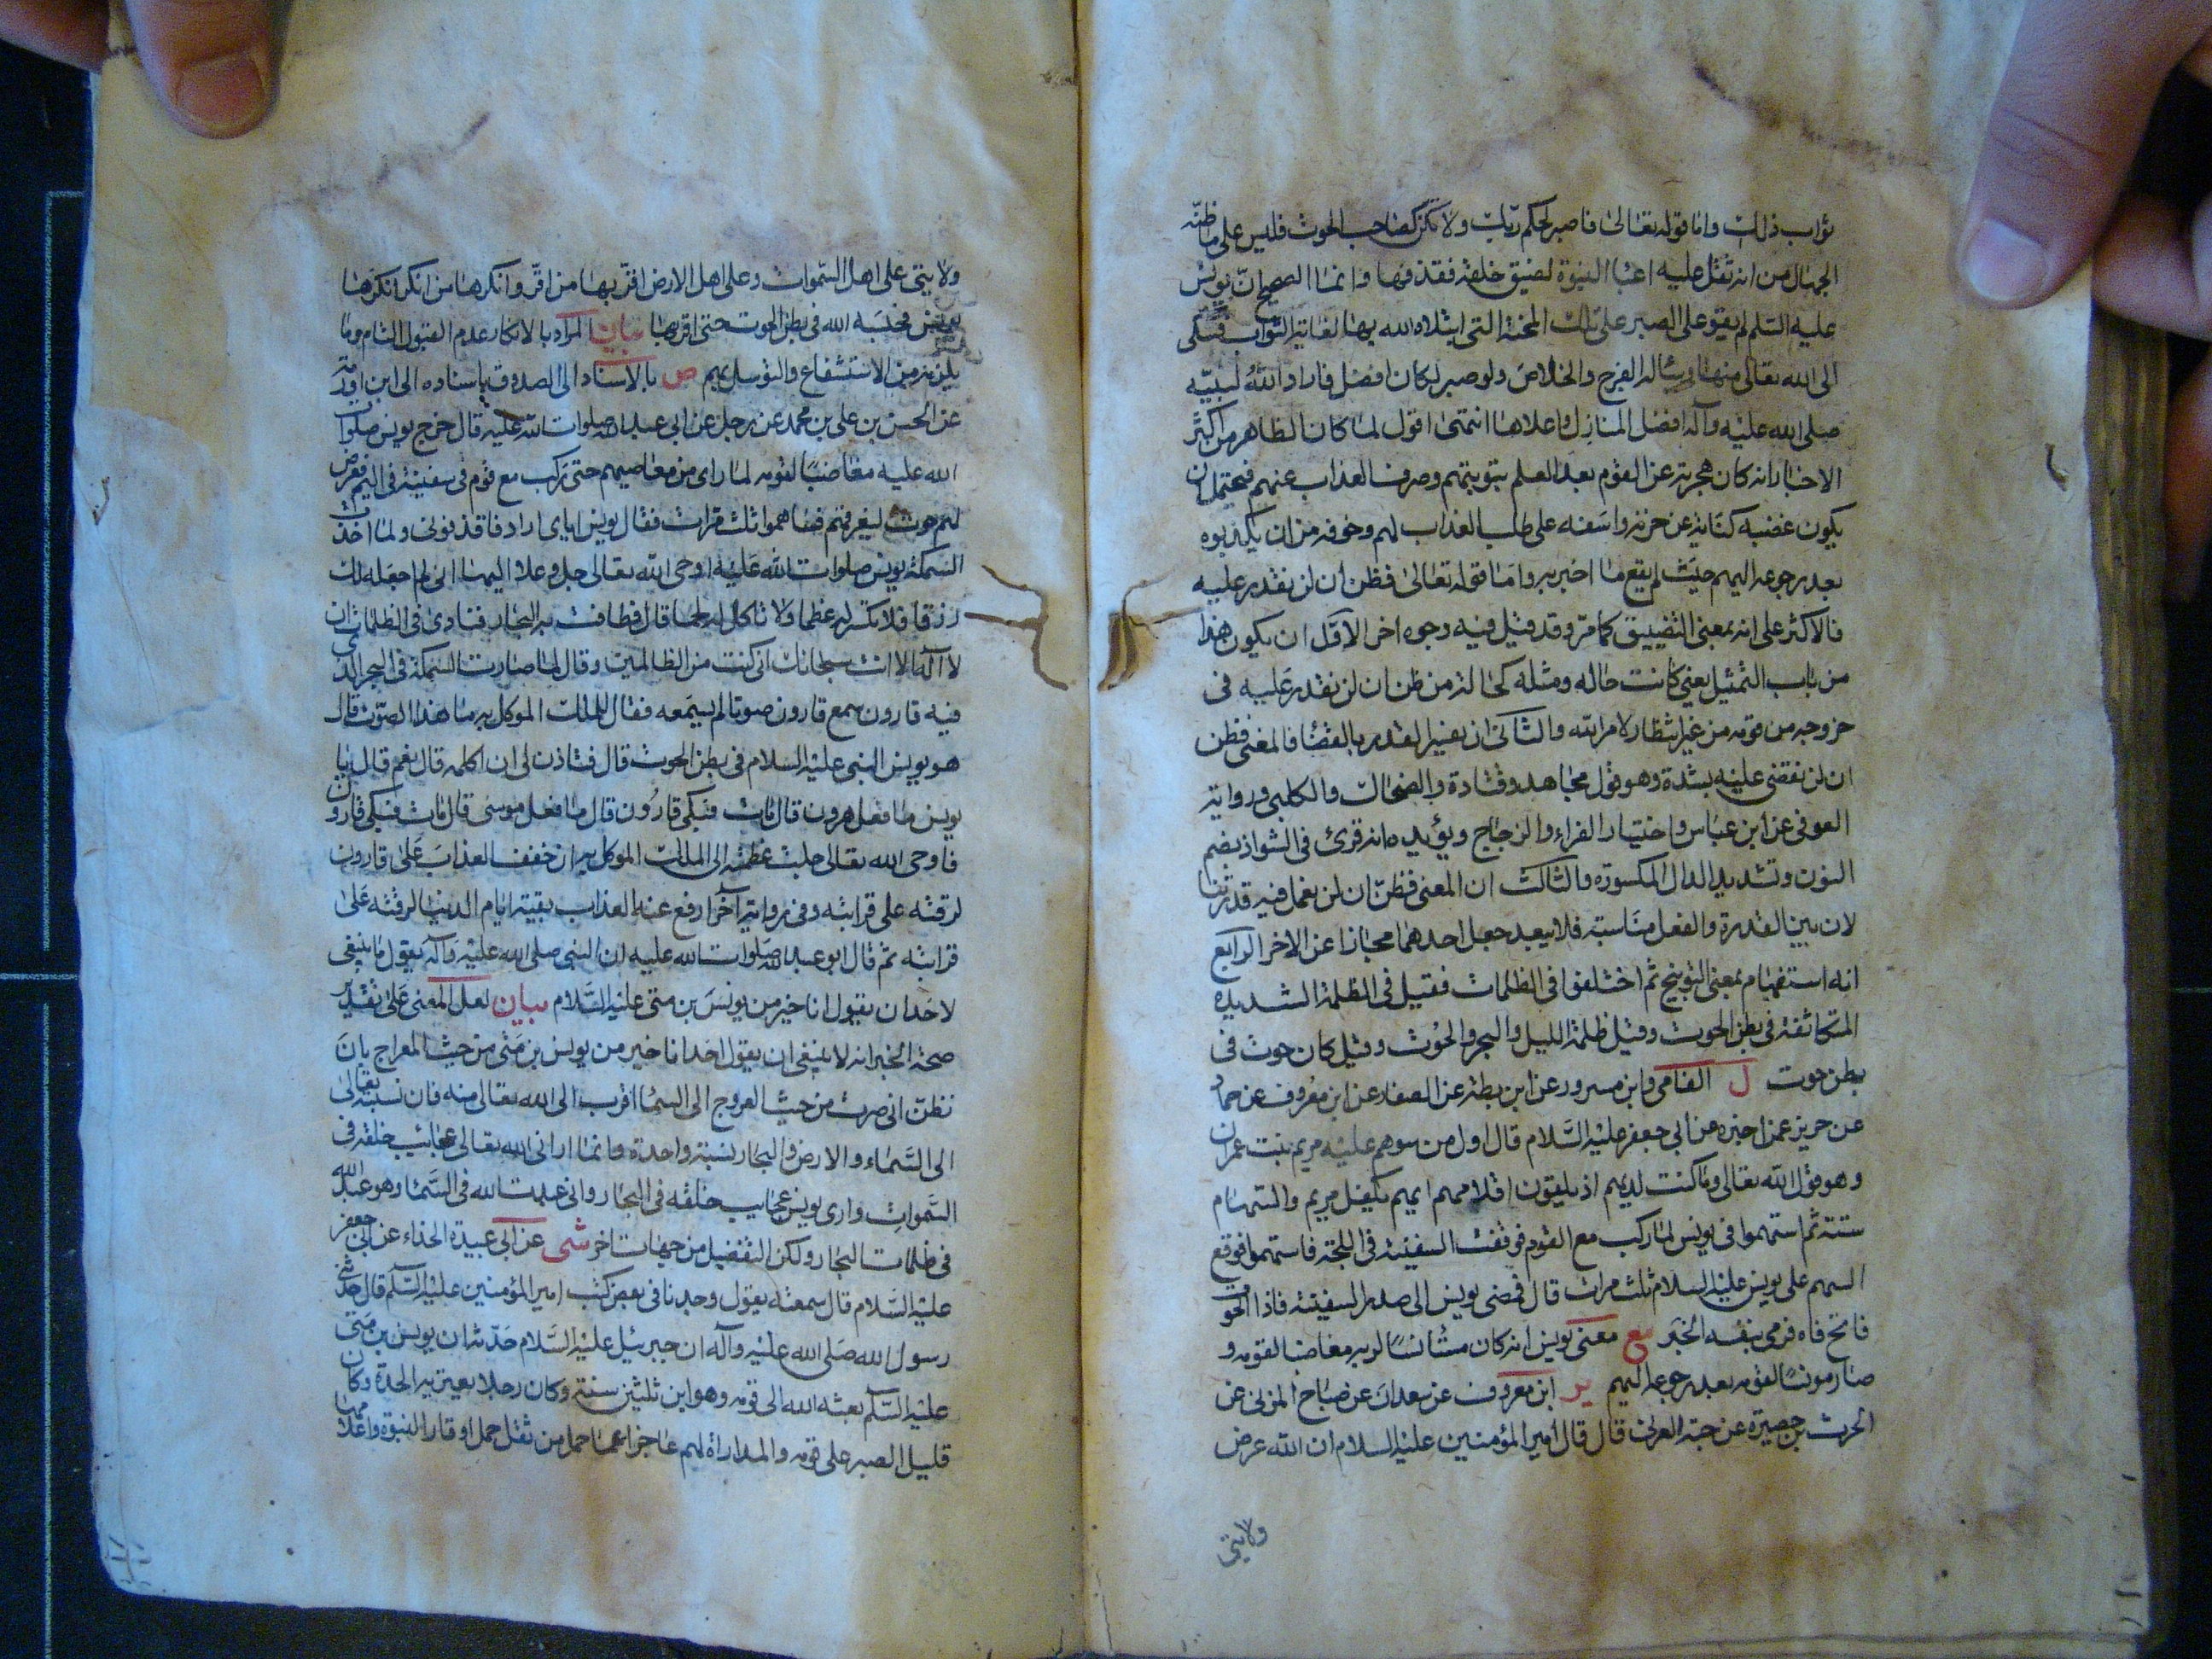 ثواب ذلك واما قوله تعالى فاصبر لحكم ربك ولا تكن كصاحب الحوت فليس على ما ظنه
الجهال من انه ثقل عليه اعبا النبوة لضيق خلقه فقذفها وانما الصحيح ان يونس
عليه السلم لم يقو على الصبر على تلك المحنة التي ابتلاه الله بها لغاية الثواب فشكى
الى الله تعالى منها وسئاله الفرج والخلاص ولو صبر لكان افضل فاراد الله لنبيه
صلى الله عليه وآله افضل المنازل واعلاها انتهى اقول لما كان الظاهر من اكثر
الاخبار انه كان هجرته عن القوم بعد العلم بتوبتهم وصرف العذاب عنهم فيحتمل ان
يكون غضبه كناية عن حزنه واسفه على طلب العذاب لهم وخوفه من ان يكذبوه
بعد رجوعه اليهم حيث لم يقع ما اخبر به واما قوله تعالى فظن ان لن نقدر عليه
فالاكثر على انه بمعنى التضييق كما مر وقد قيل فيه وجوه اخر الاول ان يكون هذا
من باب التمثيل يعني كانت حاله ومثله كحالة من ظن ان لن نقدر عليه في
خروجه من قومه من غير انتظار لامر الله والثاني ان يفسر القدر بالقضا فالمعنى فظن
ان لن نقضي عليه بشدة وهو قول مجاهد وقتادة والضحاك والكلبي ورواية
العوفي عن ابن عباس واختيار الفراء والزجاج ويؤيده انه قرئ في الشواذ بضم
النون وتشديد الدال المكسورة والثالث ان المعنى فظن ان لن نعمل فيه قدرتنا
لان بين القدرة والفعل مناسبة فلا يبعد جعل احدهما مجازا عن الاخر الرابع
انه استفهام بمعنى التوبيخ ثم اختلفوا في الظلمات فقيل في الظلمة الشديدة
المتكاثفة في بطن الحوت وقيل ظلمة الليل والبحر والحوت وقيل كان حوت في
بطن حوت ل الفامي وابن مسرور عن ابن بطة عن الصفار عن ابن معروف عن حماد
عن حريز عمن اخبره عن ابي جعفر عليه السلام قال اول من سوهم عليه مريم بنت عمران
وهو قول الله تعالى وما كنت لديهم اذ يلقون اقلامهم ايهم يكفل مريم والسهام
ستة ثم استهموا في يونس لما ركب مع القوم فوقفت السفينة في اللجة فاستهموا فوقع
السهم على يونس عليه السلام ثلث مرات قال فمضى يونس الى صدر السفينة فاذا الحوت
فاتح فاه فرمى بنفسه الخبر مع معنى يونس انه كان مستانسا لربه مغاضبا لقومه و
صار مونسا لقومه بعد رجوعه اليهم ير ابن معروف عن سعدان عن صباح المزني عن
الحرث بن حصيرة عن حبة العرني قال قال امير المؤمنين عليه السلام ان الله عرض
ولايتي
ولايتي على اهل السموات وعلى اهل الارض اقر بها من اقر وانكرها من انكر انكرها
يونس فحبسه الله في بطن الحوت حتى اقر بها بيان المراد بالانكار عدم القبول التام وما
يلزمه من الاستشفاع والتوسل بهم ص بالاسناد الى الصدوق باسناده الى ابن اورمة
عن الحسن بن علي بن محمد عن رجل عن ابي عبد الله صلوات الله عليه قال خرج يونس صلوات
الله عليه مغاضبا لقومه لما راى من معاصيهم حتى ركب مع قوم في سفينة في اليم فعرض
لهم حوت ليغرقهم فساهموا ثلث مرات فقال يونس اياى اراد فاقذفوني ولما اخذت
السمكة يونس صلوات الله عليه اوحى الله تعالى جل وعلا اليها اني لم اجعله لك
رزقا فلا تكسر له عظما ولا تاكل له لحما قال فطافت به البحار فنادى في الظلمات ان
لا اله الا انت سبحانك اني كنت من الظالمين وقال لما صارت السمكة في البحر الذى
فيه قارون سمع قارون صوتا لم يسمعه فقال للملك الموكل به ما هذا الصوت قال
هو يونس النبي عليه السلام في بطن الحوت قال فتاذن لي ان اكلمه قال نعم قال يا
يونس ما فعل هرون قال مات فبكى قارون قال ما فعل موسى قال مات فبكى قارون
فاوحى الله تعالى جلت عظمته الى الملك الموكل به ان خفف العذاب على قارون
لرقته على قرابته وفي رواية اخرا رفع عنه العذاب بقية ايام الدنيا لرقته على
قرابته ثم قال ابو عبد الله صلوات الله عليه ان النبي صلى الله عليه وآله يقول ما ينبغي
لاحد ان يقول انا خير من يونس بن متى عليه السلام بيان لعل المعنى على تقدير
صحة الخبر انه لا ينبغي ان يقول احد انا خير من يونس بن متى من حيث المعراج بان
نظن اني صرت من حيث العروج الى السما اقرب الى الله تعالى منه فان نسبته تعالى
الى السماء والارض والبحار نسبة واحدة وانما اراني الله تعالى عجايب خلقه في
السموات وارى يونس عجايب خلقه في البحار واني عبدت الله في السما وهو عبد الله
في ظلمات البحار ولكن التفضيل من جهات اخر شى عن ابي عبيدة الحذاء عن ابي جعفر
عليه السلام قال سمعته يقول وجدنا في بعض كتب امير المؤمنين عليه السلم قال حدثني
رسول الله صلى الله عليه وآله ان جبرئيل عليه السلام حدثه ان يونس بن متى
عليه السلم بعثه الله الى قومه وهو ابن ثلثين سنة وكان رجلا يعتريه الحدة وكان
قليل الصبر على قومه والمداراة لهم عاجزا عما حمل من ثقل حمل اوقار النبوة واعلامها